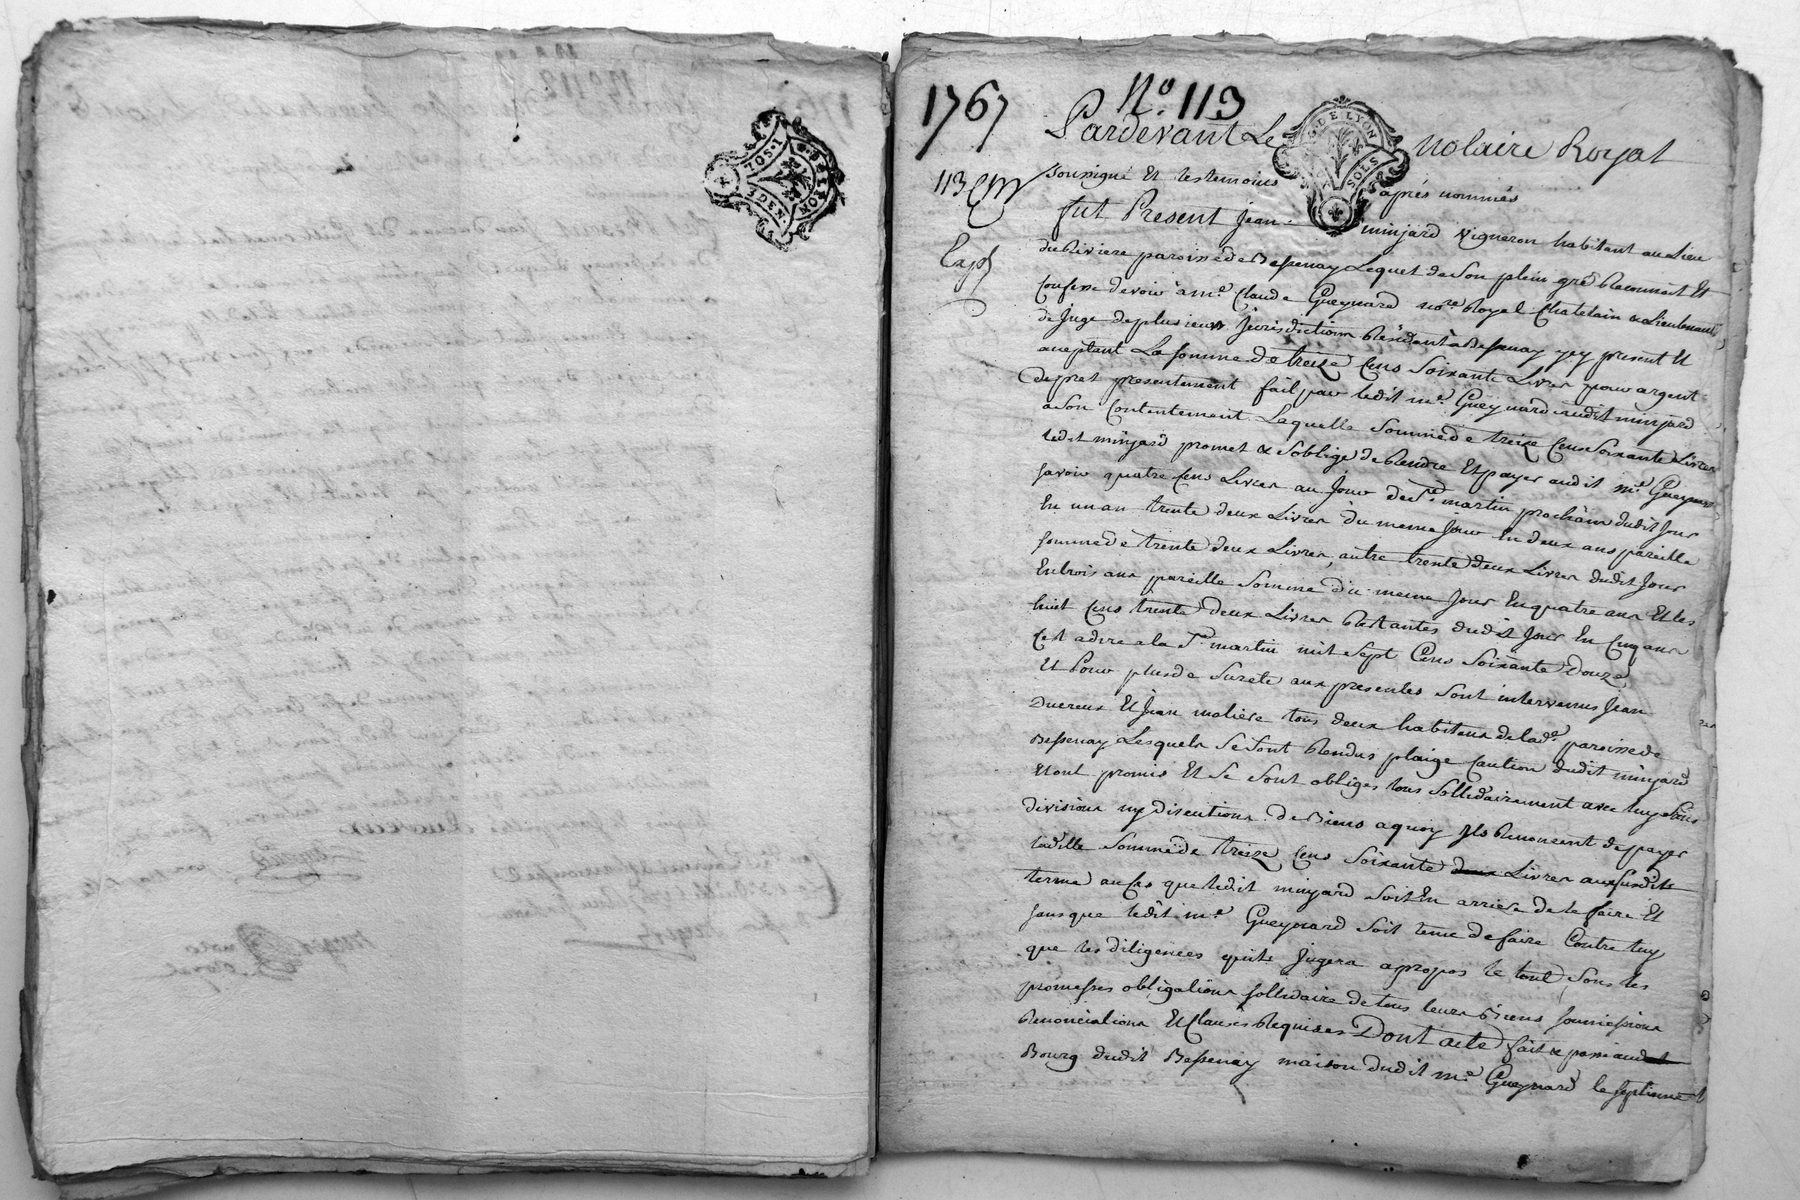 1767
N.º 113
Pardevant Le Notaire Royal
113
soussigné Et Les temoins après nommés
G. DE LYON
SOLS
fut Present Jean minjard Vigneron habitant au Lieu
de Riviere paroisse de Bessenay Lequel de Son plein gré Reconnoit Et
Confesse devoir à me. Claude Gueynard nore. Royal Chatelain & Lieutenant
de Juge de plusieurs Jurisdictions Résidant à Bessenay icy present Et
aceptant La Somme de treize Cens Soixante Livres pour argent
de pret presentement fait par ledit me. Gueynard audit minjard
a Son Contentement Laquelle Somme de treize Cens Soixante Livres
ledit minjard promet & Soblige de Rendre Et payer audit me. Gueynard
savoir quatre Cens Livres au Jour de St. martin prochain dudit Jour
En un an trente deux Livres du meme Jour En deux ans pareille
somme de trente deux Livres, autre trente deux Livres dudit Jour
En trois ans pareille Somme du meme Jour En quatre ans Et les
huit Cens trente deux Livres Restantes dudit Jour En Cinq ans
C'est adire a la St. martin mil Sept Cens Soixante Douze,
Et Pour plus de Sureté aux presentes Sont intervenus Jean
Ducreux Et Jean moliere tous deux habitans de lade. paroisse de
Bessenay Lesquels Se Sont Rendus plaige Caution dudit minjard
Et ont promis Et Se Sont obligés tous Sollidairement avec luy Sans
division ny discution de Biens a quoy Ils Renoncent de payer
ladite Somme de treize Cens Soixante deux Livres aux Susdits
terme au Cas que ledit minjard Soit En arriere de le faire Et
sans que ledit me. Gueynard Soit tenu de faire Contre luy
que les diligences qu'il Jugera apropos le tout Sous les
promesses obligations sollidaire de tous leurs Biens Soumissions
Renonciations Et Clauses Requises Dont acte fait & passé aud
Bourg dudit Bessenay maison dudit me. Gueynard le septieme